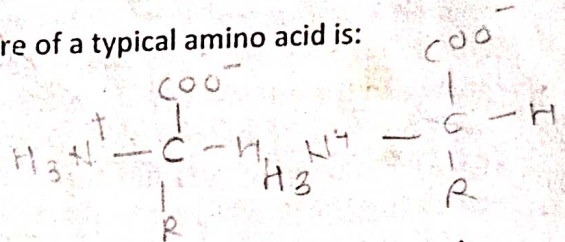 re of a typical amino acid is:
COO⁻ COO⁻
| |
H₃N⁺ — C — H, H₃N⁺ — C — H
| |
R R